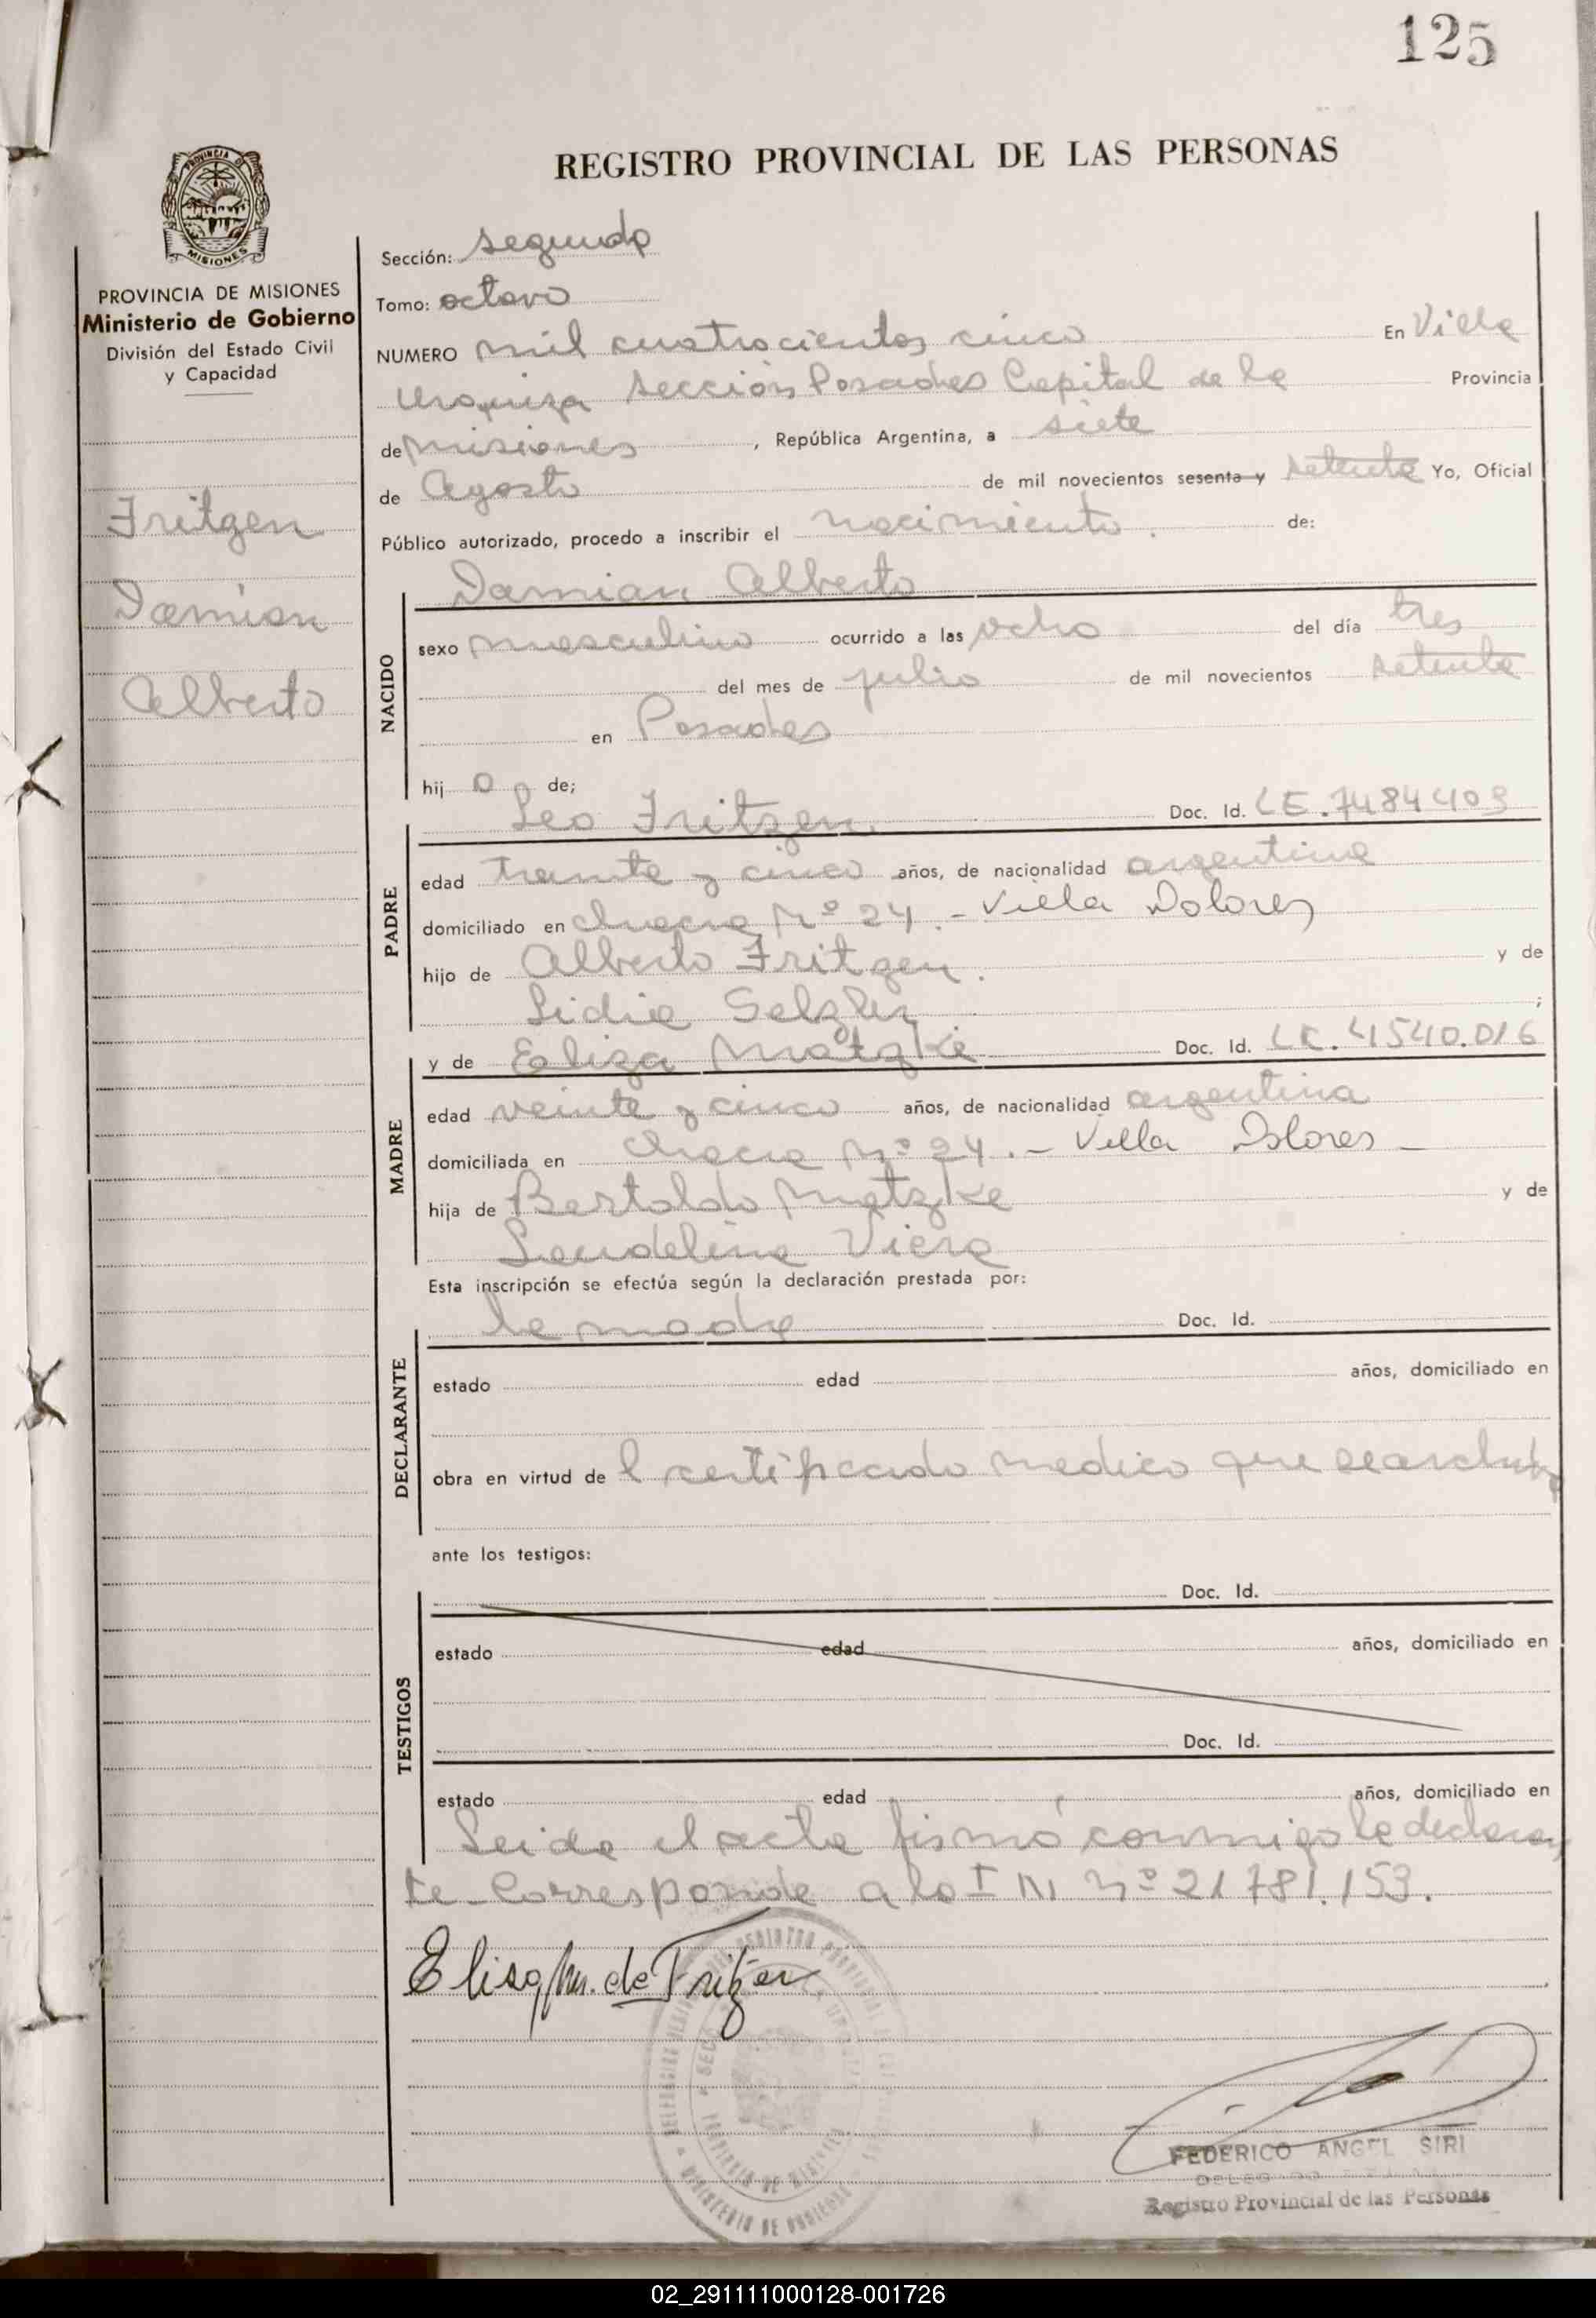 125
REGISTRO PROVINCIAL DE LAS PERSONAS
PROVINCIA DE MISIONES
PROVINCIA DE MISIONES
Ministerio de Gobierno
División del Estado Civil
y Capacidad
Fritzen
Damian
Alberto
Sección: segundo
Tomo: octavo
NUMERO mil cuatrocientos cinco En Villa
Urquiza Sección Posadas Capital de la Provincia
de Misiones, República Argentina, a siete
de Agosto de mil novecientos sesenta y setenta Yo, Oficial
Público autorizado, procedo a inscribir el nacimiento. de:
Damian Alberto
NACIDO
sexo masculino ocurrido a las ocho del día tres
del mes de julio de mil novecientos setenta
en Posadas
hij o de;
Leo Fritzen Doc. Id. LE. 7484409
PADRE
edad treinta y cinco años, de nacionalidad argentina
domiciliado en chacra Nº 24.- Villa Dolores
hijo de Alberto Fritzen. y de
Lidia Selzler;
y de Eliza Matzke Doc. Id. LC. 4540.016
MADRE
edad veinte y cinco años, de nacionalidad argentina
domiciliada en chacra Nº 24.- Villa Dolores -
hija de Bertoldo Matzke y de
Laudelina Viera
Esta inscripción se efectúa según la declaración prestada por:
la madre Doc. Id.
DECLARANTE
estado edad años, domiciliado en
obra en virtud de l certificado medico que se archiva
ante los testigos:
Doc. Id.
TESTIGOS
estado edad años, domiciliado en
Doc. Id.
estado edad años, domiciliado en
Leida el acta firmó conmigo la declaran
te. Corresponde a la I N Nº 21781.153.
Elisa M. de Fritzen
FEDERICO ANGEL SIRI
Registro Provincial de las Personas
02_291111000128-001726